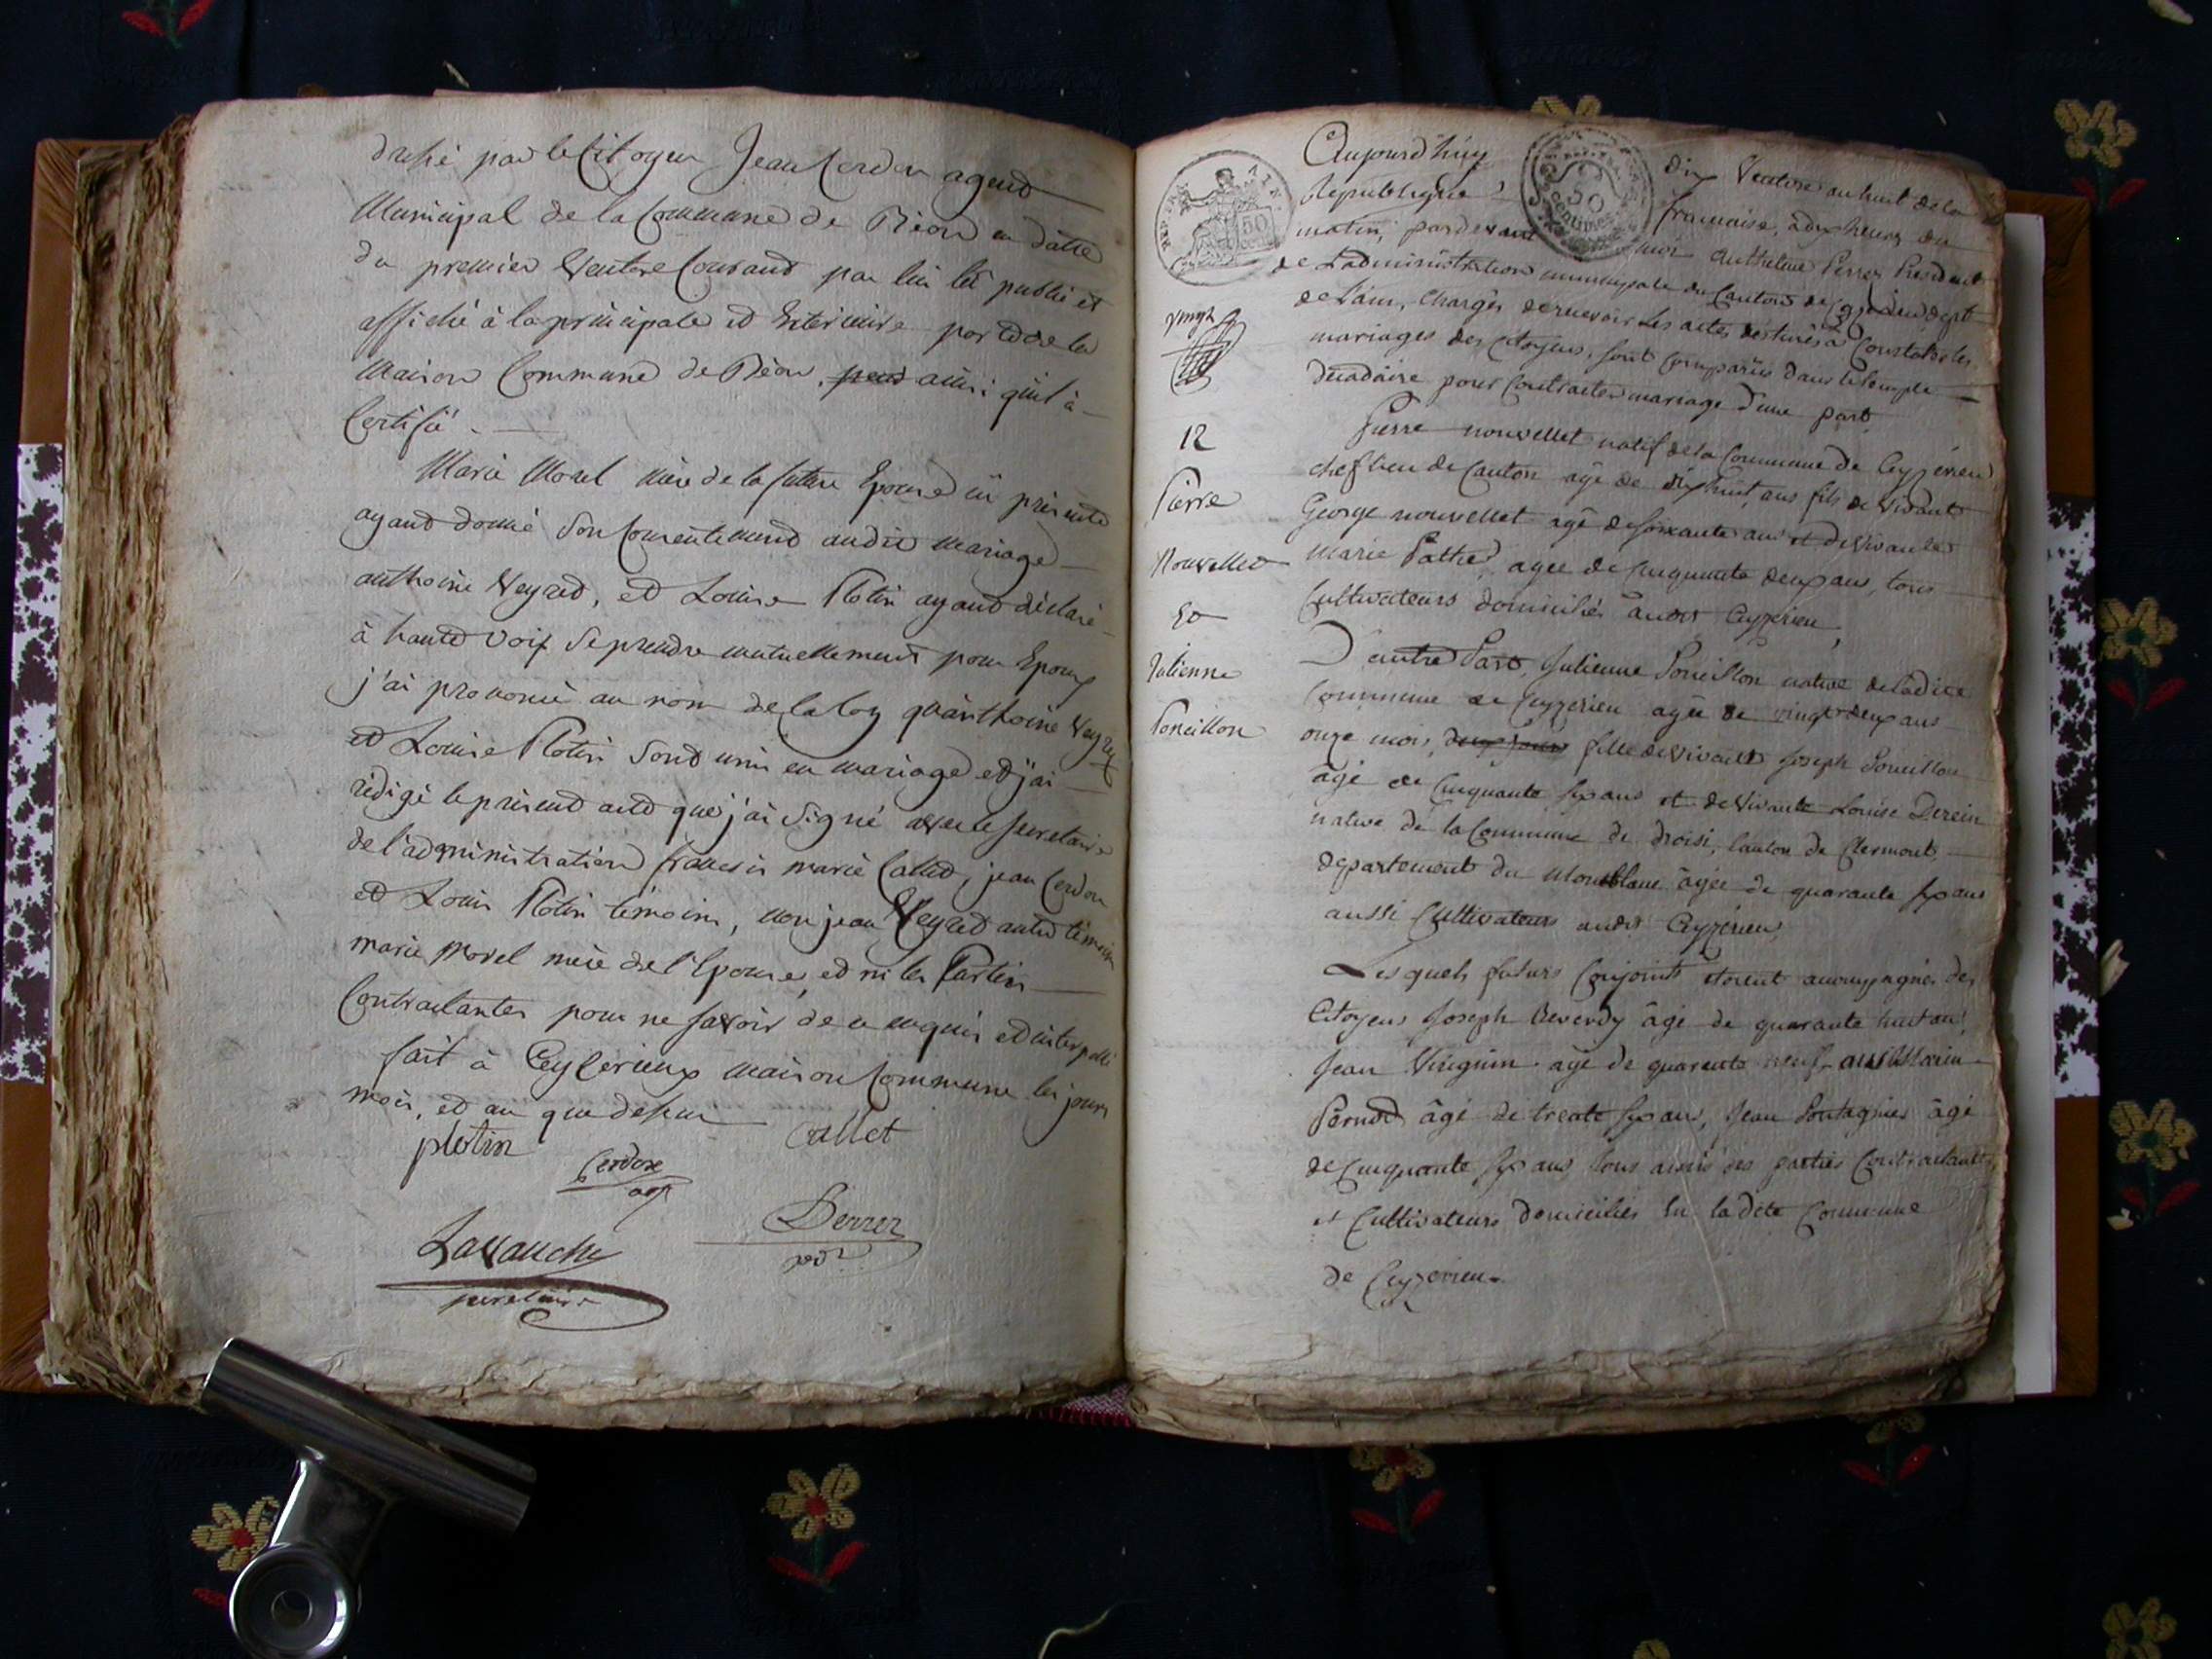 dressé par le Citoyen Jean Cerdon agend
Municipal de la Commune de Béon en datte
du premier Ventose Courand par lui lû publié et
affiché à la principale et Exterieure porte de la
Maison Commune de Béon, ainsi qu'il à
Certifié.
Marie Morel mère de la future Epouse ici présente
ayand donné son Consentement audit mariage
anthoine Veyred, et Louise Plotin ayand déclaré
à haute voix se prendre mutuellement pour Epoux
j'ai prononcé au nom de la loy qu'anthoine Veyred
et Louise Plotin sond unis en mariage et j'ai
rédigé le présent acte que j'ai signé avec le secretaire
de l'administration francois marie Callet, jean Cerdon
et Louis Plotin témoins, non jean Veyred autre témoin
marie Morel mère de l'Epouse, et ni les Parties
Contractantes pour ne savoir de ce enquis et interpellé
fait à Ceyzerieux maison Commune les jours
mois, et an que dessus
plotin
Callet
Cerdon
agt
Lavauche
secretaire
Perrer
pdt
REP. FRA.
50
cent.
50
centimes
Aujourd'huy dix Ventose an huit de la
Republique française, à dix heures du
matin, pardevant moi Anthelme Perrer President
de L'administration municipale du Canton de Ceyzérieu dept
de l'ain, Chargés de recevoir Les actes destinés à Constater les
mariages des citoyens, sont comparus dans le temple
décadaire pour Contracter mariage d'une part
Pierre nouvellet natif de la Commune de Ceyzérieu
chef lieu de Canton agé de dix huit ans fils de vivant
George nouvellet agé de soixante ans et de vivante
Marie Pathe, agée de cinquante deux ans, tous
Cultivateurs domiciliés audit Ceyzérieu,
D'autre Part, Julienne Poncillon native de ladite
Commune de Ceyzerieu agée de vingt deux ans
onze mois, deux jours fille de vivant Joseph Poncillon
agé de Cinquante six ans et de vivante Louise Derein
native de la Commune de droisi, Canton de Clermont,
departement du Montblanc agée de quarante six ans
aussi Cultivateurs audit Ceyzérieu,
Lesquels futurs Conjoints étoient accompagnés des
Citoyens Joseph Reverdy âgé de quarante huit ans,
Jean Vinignin agé de quarente neuf ans
Pernod âgé de trente six ans, Jean Pontagnier âgé
de Cinquante six ans tous amis des parties Contractantes
et Cultivateurs domiciliés en la dite Commune
de Ceyzerieu.
vingt
12
Pierre
Nouvellet
Et
Julienne
Poncillon